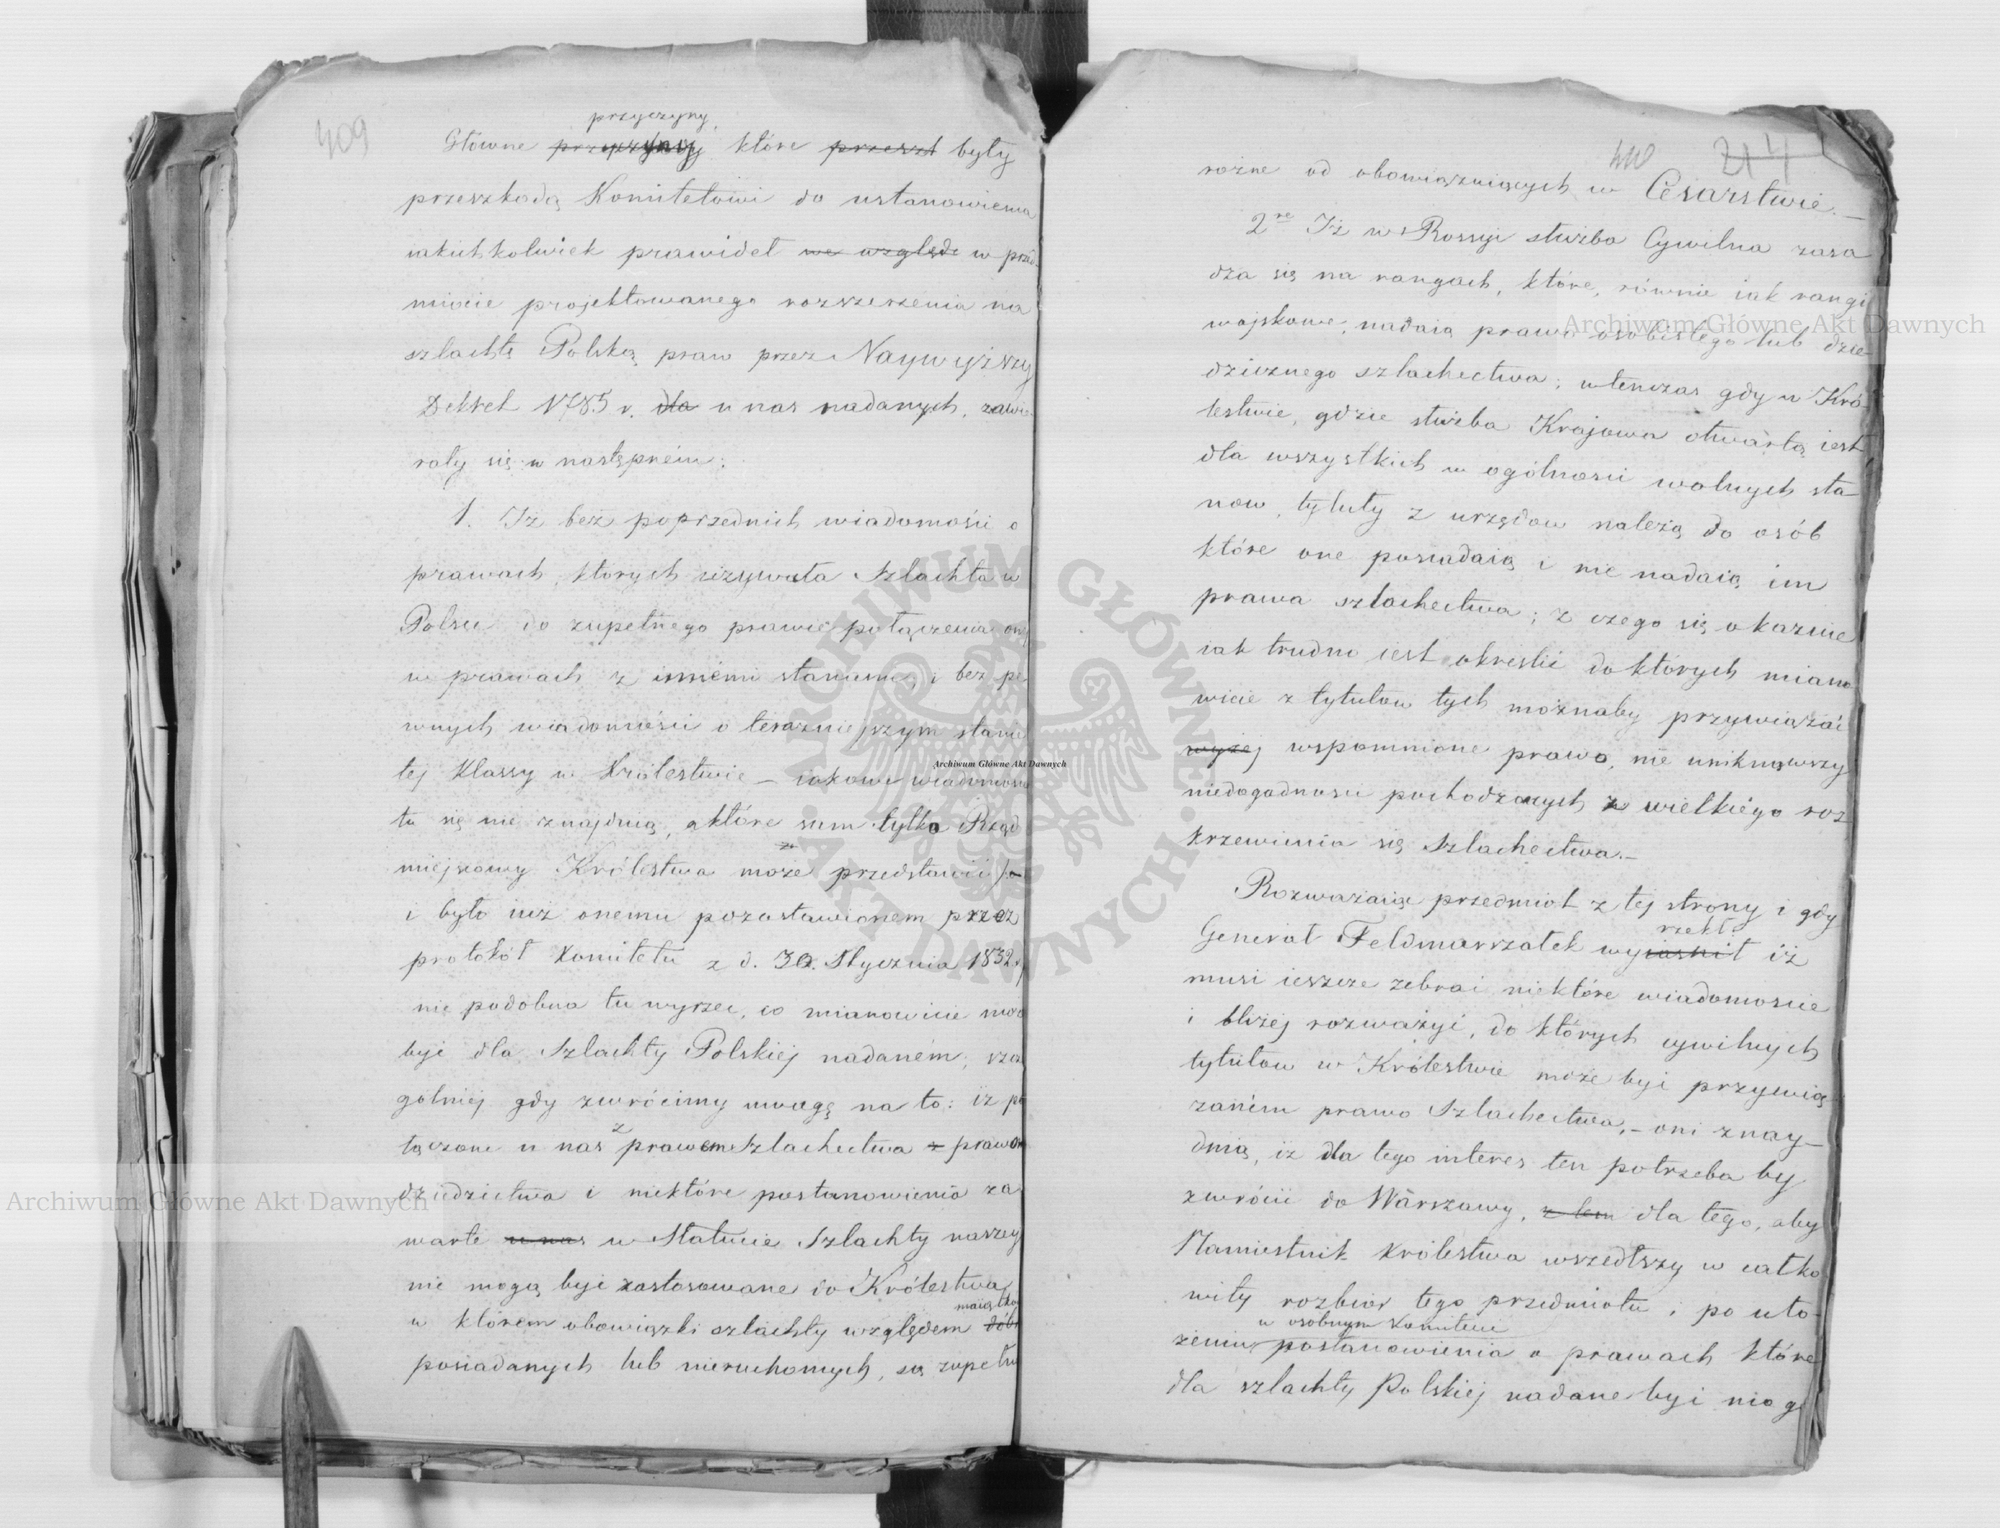 409
przyczyny
Główne przyczyny które przeszł były
przeszkodą Komitetowi do ustanowienia
iakichkolwiek prawideł we względe w przed
miocie projektowanego rozszerzenia na
szlachtę Polską praw przez Naywyższy
Dekret 1785 r. dla u nas nadanych, zawie
rały się w następnem:
1. Iż bez poprzednich wiadomości o
prawach, których używała Szlachta w
Polsce do zupełnego prawie połączenia oney
w prawach z innemi stanami, i bez pe
wnych wiadomości o teraznieyszym stanie
tej klassy w Królestwie – iakowe wiadomości
tu się nie znajdują, a które sam tylko Rząd
miejscowy Królestwa może przedstawić, co
i było iuż onemu pozostawionem przez
protokół Komitetu z d. 30. Stycznia 1832 r.
nie podobna tu wyrzec, co mianowicie może
byc dla Szlachty Polskiej nadaném, szcze
gólniej gdy zwrócimy uwagę na to: iż po
łączone u nas z prawem Szlachectwa z prawem
dziedzictwa i niektóre postanowienia za
warte u nas w Statucie Szlachty naszey
nie mogą byc zastosowane do Królestwa,
maiątków
w którem obowiązki szlachty względem dóbr
posiadanych lub nieruchomych, są zupełnie
410 214
rożne od obowiązuiących w Cesarstwie. –
2re Iż w Rossyi służba Cywilna zasa
dza się na rangach, które, równie iak rangi
wojskowe, nadaią prawo osobistego lub dzie
dzicznego szlachectwa; wtenczas gdy w Kró
lestwie, gdzie służba Krajowa otwartą iest
dla wszystkich w ogólnosci wolnych sta
now, tytuły z urzędow należą do osób
które one posiadaią i nie nadaią im
prawa szlachectwa; z czego się okazuie
iak trudno iest okreslić do których miano
wicie z tytułow tych możnaby przywiązać
wyżej wspomnione prawo, nie uniknąwszy
niedogodnosci pochodzących z wielkiego roz
krzewienia się Szlachectwa. –
Rozważaiąc przedmiot z tej strony i gdy
rzekł
Generał Feldmarszałek wyiasnił iż
musi ieszcze zebrac niektóre wiadomoscie
i bliżej rozważyć, do których cywilnych
tytułow w Królestwie może byc przywią
zaném prawo Szlachectwa, – oni znay–
duią, iż dla tego interes ten potrzeba by
zwrócić do Warszawy, z tem dla tego, aby
Namiestnik Królestwa wszedłszy w całko
wity rozbior tego przedmiotu i po uło
w osobnym Komitecie
żeniu postanowienia o prawach które
dla szlachty Polskiej nadane byc mogą
Archiwum Główne Akt Dawnych
Archiwum Główne Akt Dawnych
Archiwum Główne Akt Dawnych
ARCHIWUM GŁÓWNE AKT DAWNYCH